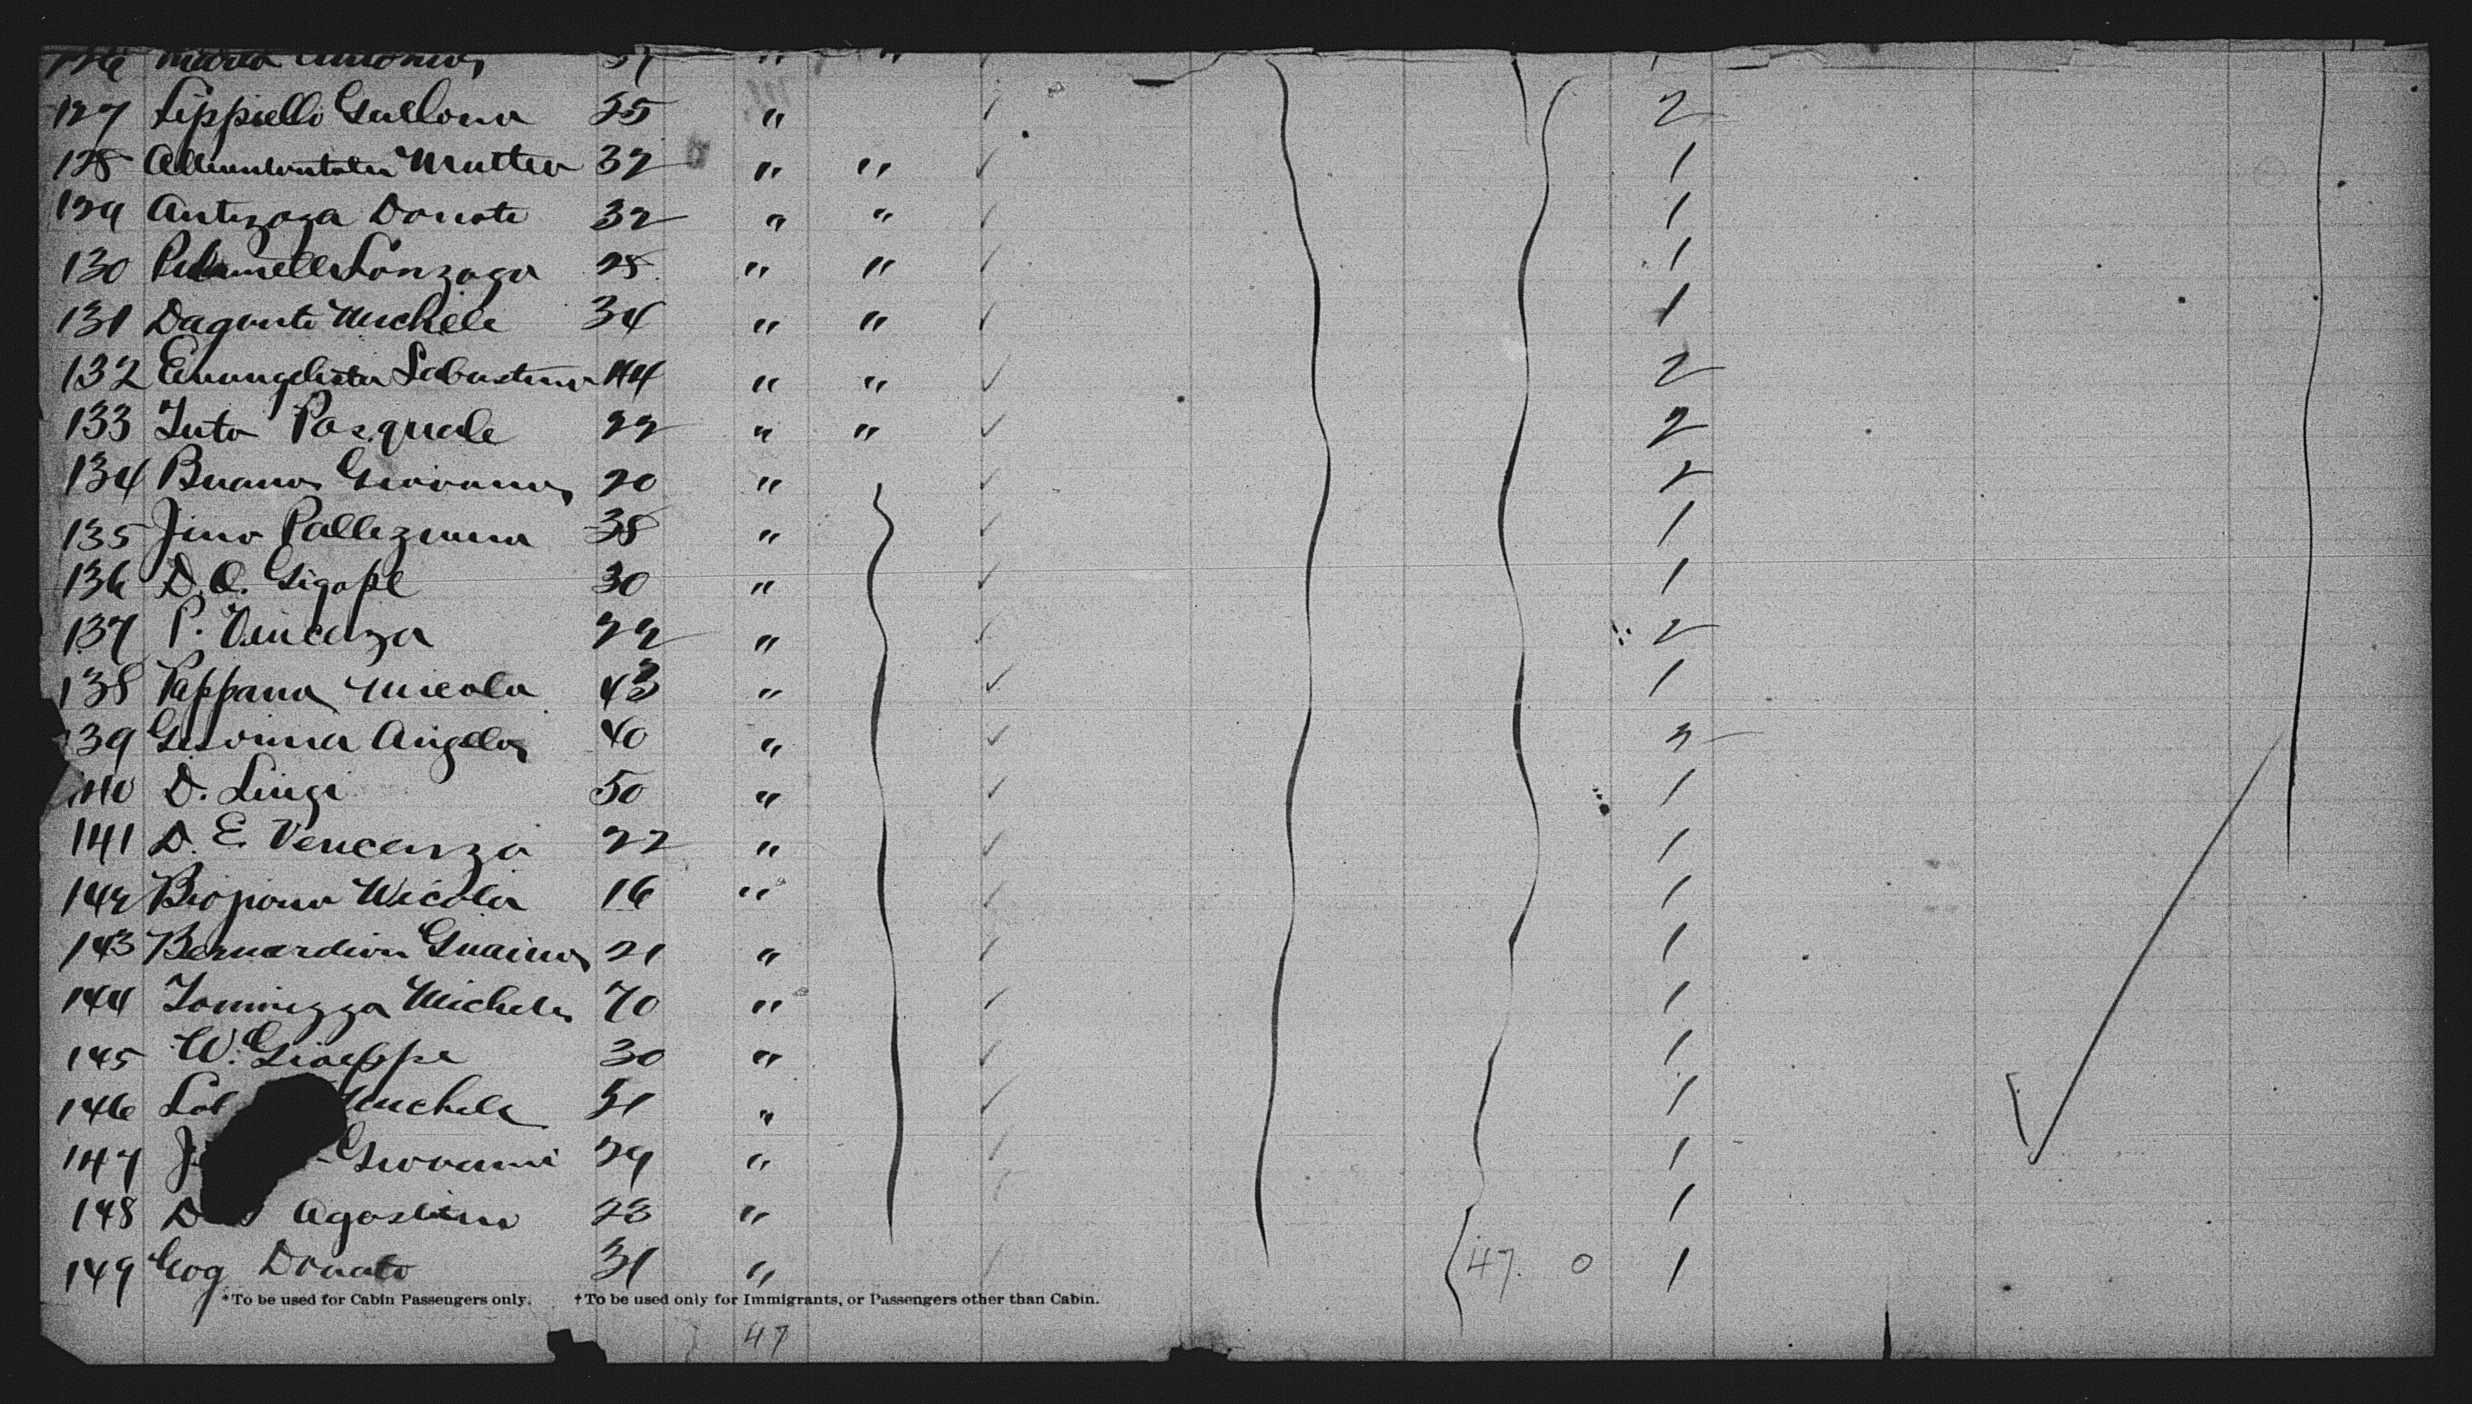 126 Maria Antonio 37 " "
127 Lippiello Gullona 25 " 2
128 Mutteo 32 " " 1
129 Antezaga Donato 32 " " 1
130 Lonzaga 28 " " 1
131 Dagoste Michele 34 " " 1
132 Evangelista Sebastino 44 " " 2
133 Tuto Pasquale 22 " " 2
134 Buano Giovanno 20 " 2
135 Jino Pallezunna 38 " 1
136 D. O. Gigope 30 " 1
137 P. Vincenza 22 " 2
138 Pappana Nicola 43 " 1
139 Giovinna Angelo 40 "
140 D. Luigi 50 " 1
141 D. E. Vencenza 22 " 1
142 Biojiona Nicola 16 " 1
143 Bernardion Gnaimo 21 " 1
144 Tominezza Michele 70 " 1
145 W. Gioseppe 30 " 1
146 Michele 31 " 1
147 Giovanni 29 " 1
148 Agostino 23 " 1
149 Gog Donato 31 " 47. 0 1
*To be used for Cabin Passengers only. †To be used only for Immigrants, or Passengers other than Cabin.
47